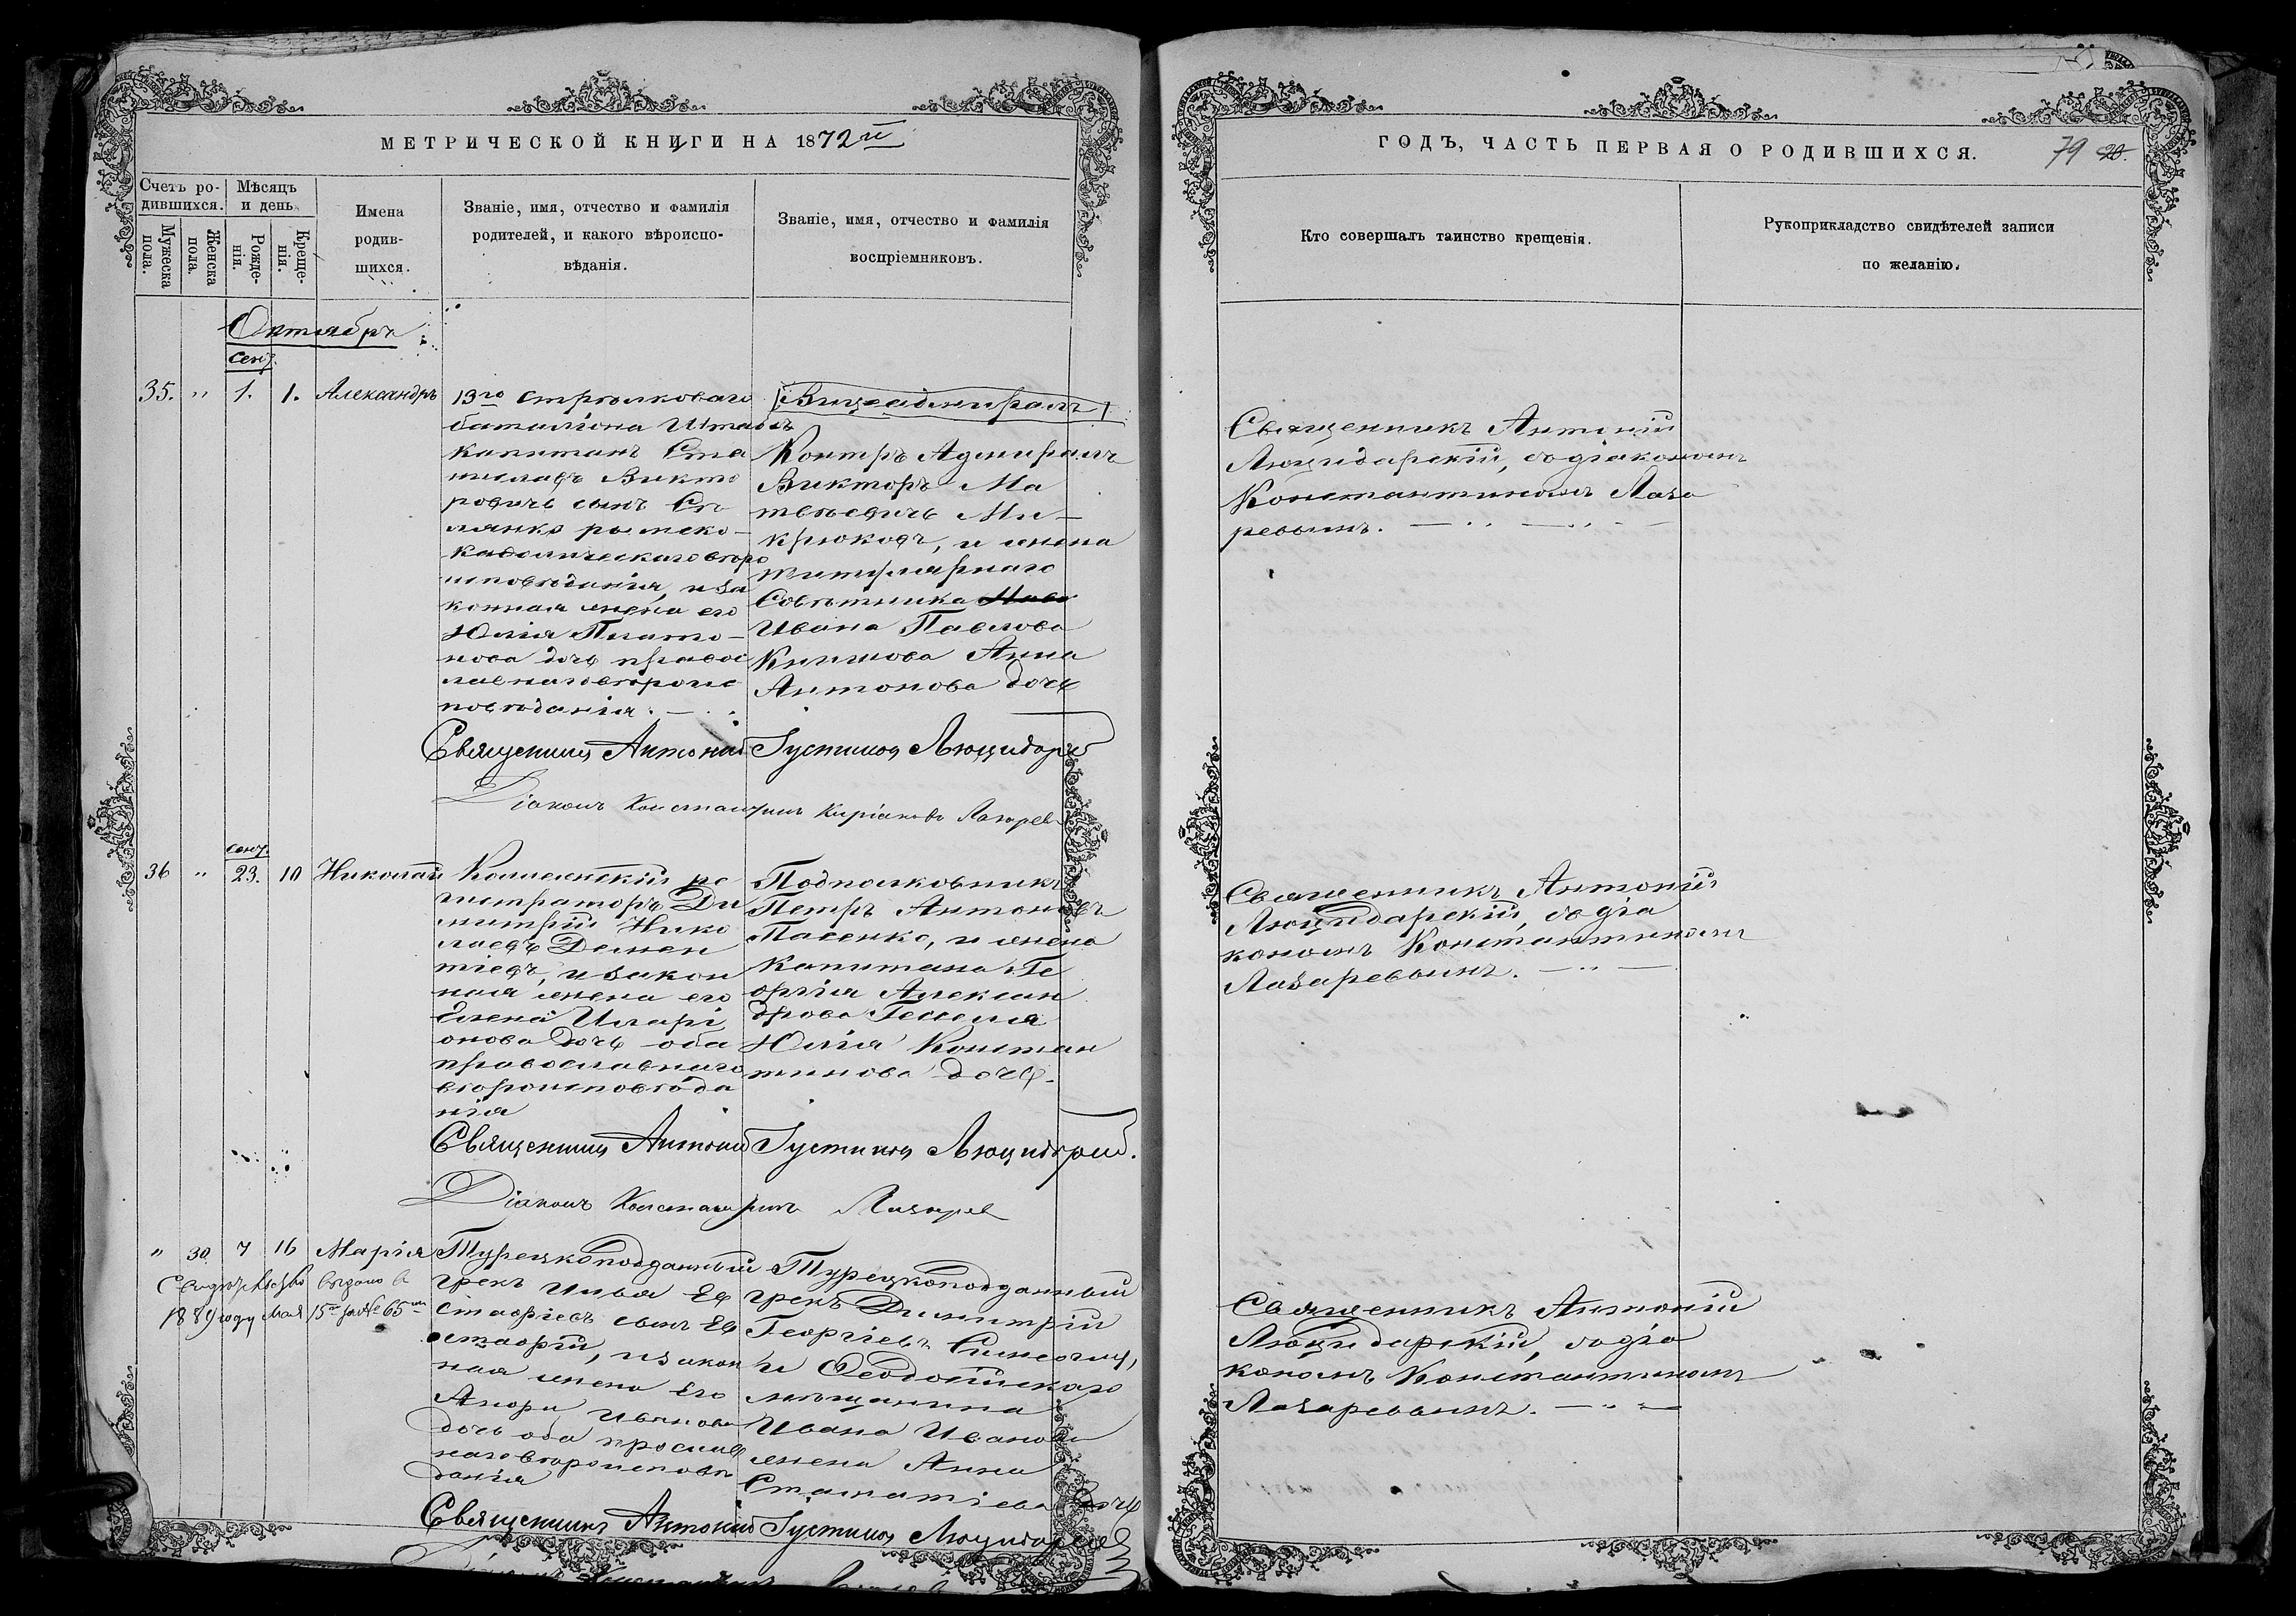 МЕТРИЧЕСКОЙ КНИГИ НА 1872й
Счетъ ро-
дившихся.
Мѣсяцъ
и день
Мужеска
пола.
Женска
пола.
Рожде-
нія.
Креще-
нія.
Имена
родив-
шихся.
Званіе, имя, отчество и фамилія
родителей, и какого вѣроиспо-
вѣданія.
Званіе, имя, отчество и фамилія
воспріемниковъ.
Октябрь
сен.
35. " 1. 1. Александръ
13го стрѣлковаго
баталіона Штабсъ
капитанъ Ста
ниславъ Викто
ровичъ сынъ
римско-
католическаго вѣро
исповѣданія, и за
конная жена его
Юлія Плато-
нова дочь правос
лавнаго вѣроис
повѣданія.
Вице адмиралъ
Контръ Адмиралъ
Викторъ Ма
твѣевичъ Ми-
крюковъ, и жена
титулярнаго
Совѣтника
Ивана Павлова
Анна
Антонова дочь
Священникъ Антоній Іустиновъ Люцидарскій
Діаконъ Константинъ Киріаковъ Лазарев
сен.
36 " 23. 10 Николай
Коллежскій ре
гистраторъ Ди
митрій Нико
лаевъ Демен
тіевъ, и закон
ная жена его
Елена Иларі
онова дочь оба
православнаго
вѣроисповѣда
нія
Подполковникъ
Петръ Антоновъ
Пасенко, и жена
Капитана Ге
оргія Алексан
дрова
Юлія Констан
тинова дочь.
Священникъ Антоній Іустиновъ Люцидарскій.
Діаконъ Константинъ Лазарев
" 30 7 16 Марія
Свидѣтельство выдано въ
1889 году мая 15го за № 65мъ
Турецкоподданный
грекъ Илья Ев
стафіевъ сынъ Ев
стафій, и закон
ная жена его
Ивanова
дочь оба православ
наго вѣроисповѣ
данія
Турецкоподданный
грекъ Димитрій
Георгіевъ
и Ѳеодосійскаго
мѣщанина
Ивана Иванова
жена Анна
Стаматіева дочь
Священникъ Антоній Іустиновъ Люцидарскій
ГОДЪ, ЧАСТЬ ПЕРВАЯ О РОДИВШИХСЯ.
79 20.
Кто совершалъ таинство крещенія.
Рукоприкладство свидѣтелей записи
по желанію.
Священникъ Антоній
Люцидарскій, съ діакономъ
Константиномъ Лаза
ревымъ.
Священникъ Антоній
Люцидарскій, съ діа
кономъ Константиномъ
Лазаревымъ.
Священникъ Антоній
Люцидарскій, съ діа
кономъ Константиномъ
Лазаревымъ.